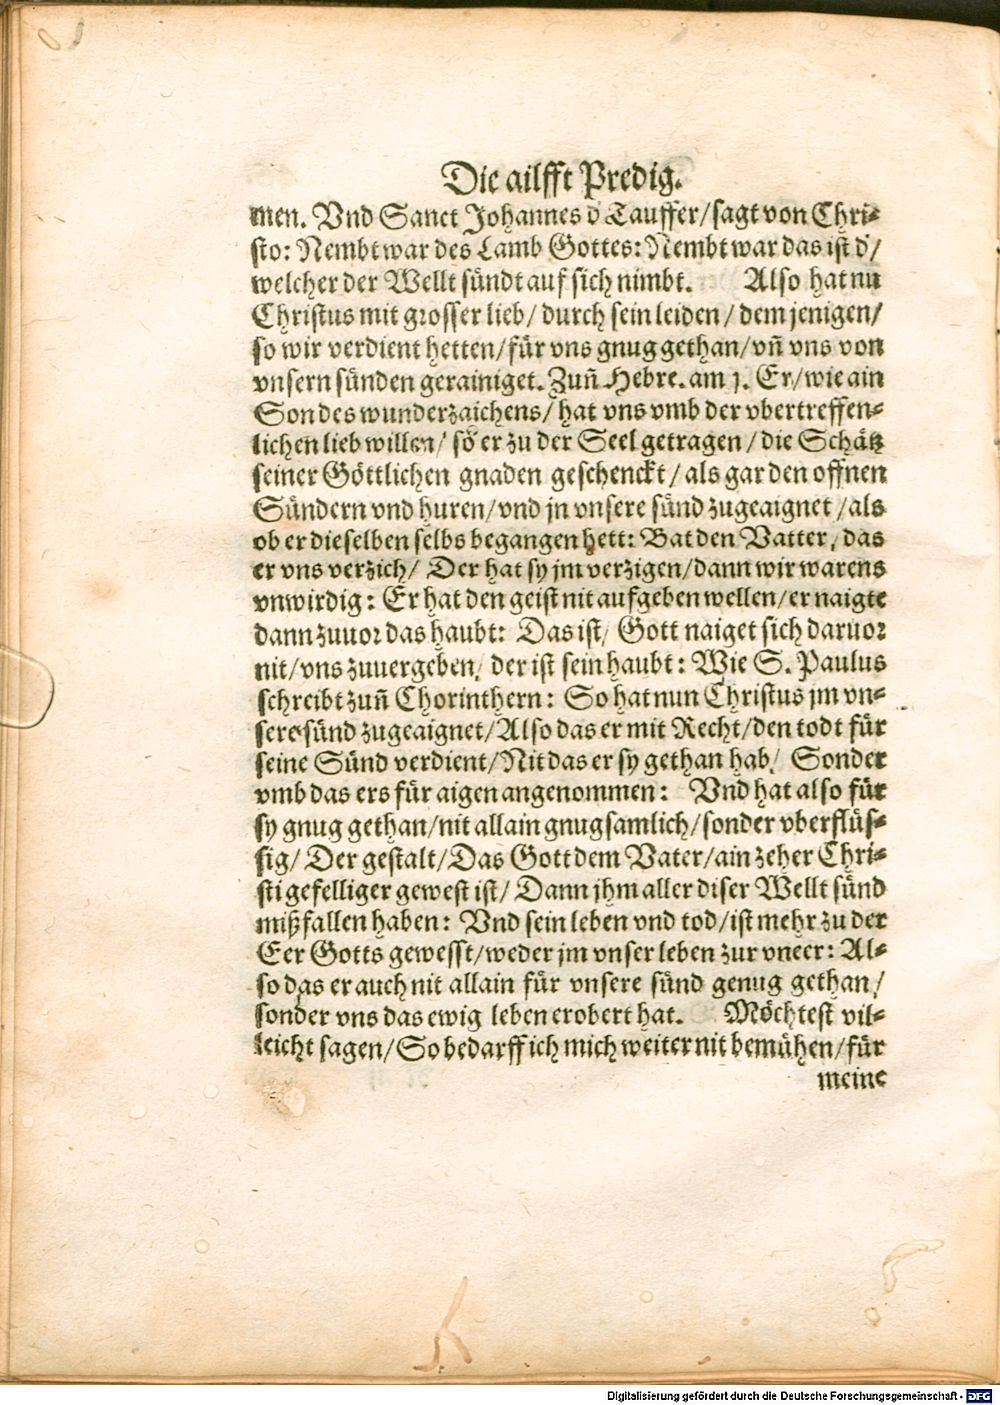 Die ailfft Predig.
men. Vnd Sanct Johannes d̕ Tauffer/sagt von Chri⸗
sto: Nembt war des Lamb Gottes: Nembt war das ist d̕/
welcher der Wellt sündt auf sich nimbt. Also hat nu
Christus mit grosser lieb/ durch sein leiden/ dem jenigen/
so wir verdient hetten/für vns gnug gethan/vñ vns von
vnsern sünden gerainiget. Zuñ Hebre. am j. Er/wie ain
Son des wunderzaichens/ hat vns vmb der vbertreffen⸗
lichen lieb willen/ so er zu der Seel getragen/die Schätz
seiner Göttlichen gnaden geschenckt/ als gar den offnen
Sündern vnd huren/vnd jn vnsere sünd zugeaignet/als
ob er dieselben selbs begangen hett: Bat den Vatter, das
er vns verzich/ Der hat sy jm verzigen/dann wir warens
vnwirdig: Er hat den geist nit aufgeben wellen/er naigte
dann zuuor das haubt: Das ist/ Gott naiget sich daruor
nit/vns zuuergeben, der ist sein haubt: Wie S. Paulus
schreibt zuñ Chorinthern: So hat nun Christus jm vn⸗
sere sünd zugeaignet/Also das er mit Recht/den todt für
seine Sünd verdient/Nit das er sy gethan hab/ Sonder
vmb das ers für aigen angenommen: Vnd hat also für
sy gnug gethan/nit allain gnugsamlich/sonder vberflüs⸗
sig/ Der gestalt/Das Gott dem Vater/ain zeher Chri⸗
sti gefelliger gewest ist/ Dann jhm aller diser Wellt sünd
mißfallen haben: Vnd sein leben vnd tod/ist mehr zu der
Eer Gotts gewesst/weder jm vnser leben zur vneer: Al⸗
so das er auch nit allain für vnsere sünd genug gethan/
sonder vns das ewig leben erobert hat. Möchtest vil⸗
leicht sagen/So bedarff ich mich weiter nit bemühen/für
meine
Digitalisierung gefördert durch die Deutsche Forschungsgemeinschaft - DFG